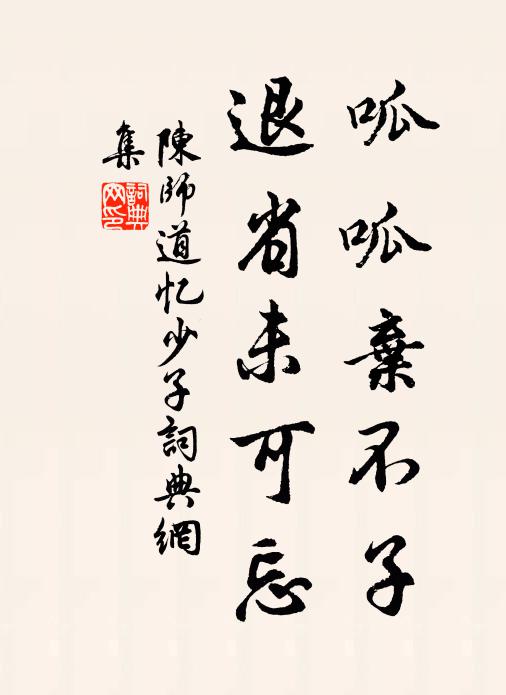 呱呱棄不子
退省未可忘
陳師道忆少子詞典網
集
詞典網印